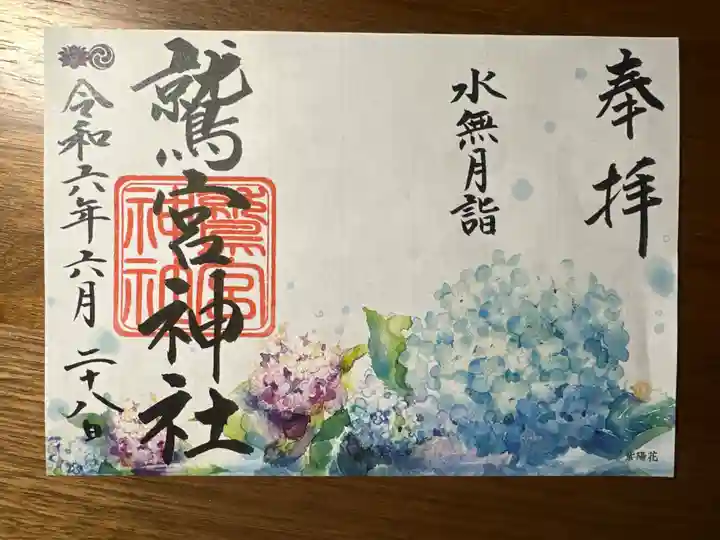 奉拝
水無月詣
鷲宮神社
鷲宮
神社
令和六年六月二十八日
紫陽花